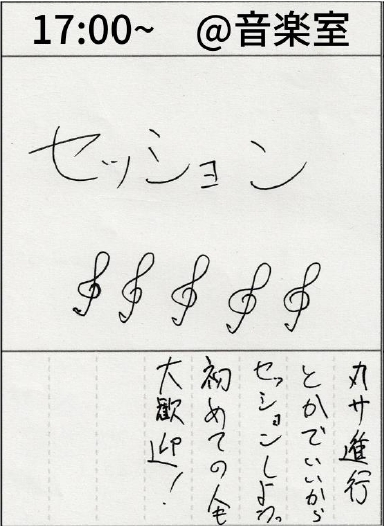 17:00~ @音楽室
セッション
丸サ進行
とかでいいから
セッションしよっ
初めての人も
大歓迎!